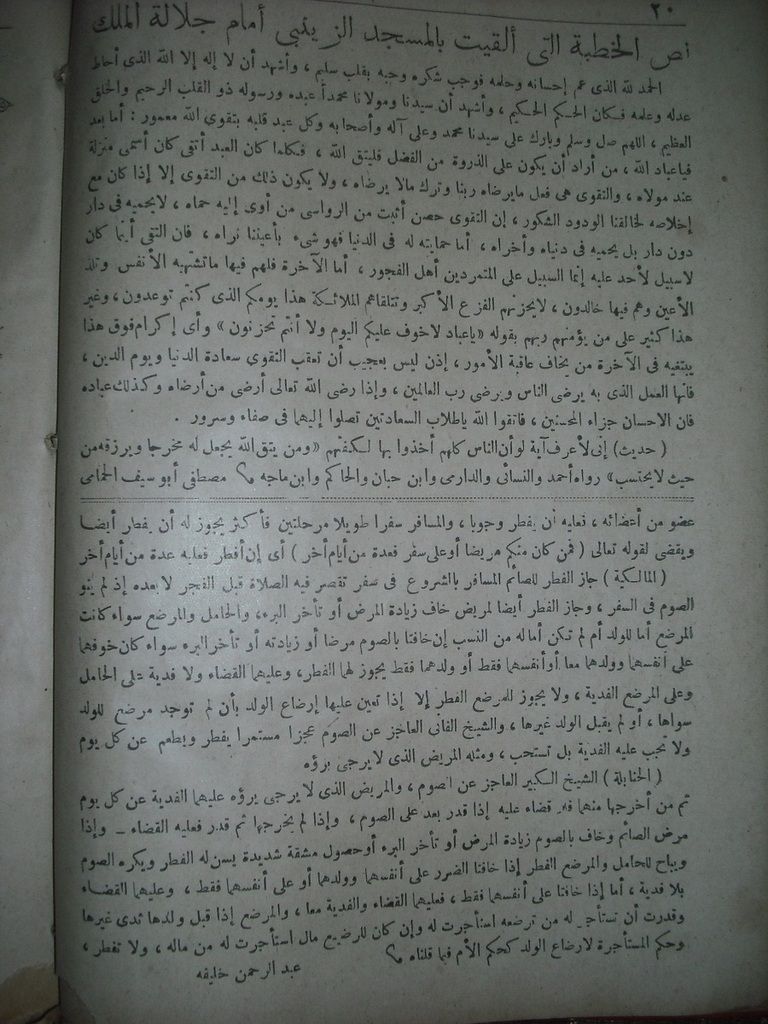 ٢٠
نص الخطبة التى ألقيت بالمسجد الزينبى أمام جلالة الملك
الحمد لله الذى عم إحسانه وحلمه فوجب شكره وحبه بقلب سليم ، وأشهد أن لا إله إلا الله الذى أحاط
عدله وعلمه فكان الحكم الحكيم ، وأشهد أن سيدنا ومولانا محمداً عبده ورسوله ذو القلب الرحيم والخلق
العظيم ، اللهم صل وسلم وبارك على سيدنا محمد وعلى آله وأصحابه وكل عبد قلبه بتقوى الله معمور : أما بعد
فياعباد الله ، من أراد أن يكون على الذروة من الفضل فليتق الله ، فكلما كان العبد أتقى كان أسمى منزلة
عند مولاه ، والتقوى هى فعل مايرضاه ربنا وترك مالا يرضاه ، ولا يكون ذلك من التقوى إلا إذا كان مع
إخلاصه لخالقنا الودود الشكور ، إن التقوى حصن أثبت من الرواسى من أوى إليه حماه ، لايحميه فى دار
دون دار بل يحميه فى دنياه وأخراه ، أما حمايته له فى الدنيا فهو شىء بأعيننا نراه ، فان التقى أينما كان
لاسبيل لأحد عليه إنما السبيل على المتمردين أهل الفجور ، أما الآخرة فلهم فيها ماتشتهيه الأنفس وتلذ
الأعين وهم فيها خالدون ، لايحزنهم الفزع الأكبر وتتلقاهم الملائكة هذا يومكم الذى كنتم توعدون ، وغير
هذا كثير على من يؤمنهم ربهم بقوله «ياعباد لاخوف عليكم اليوم ولا أنتم تحزنون » وأى إكرام فوق هذا
يبتغيه فى الآخرة من يخاف عاقبة الأمور ، إذن ليس بعجيب أن تعقب التقوى سعادة الدنيا ويوم الدين ،
فانها العمل الذى به يرضى الناس ويرضى رب العالمين ، وإذا رضى الله تعالى أرضى من أرضاه وكذلك عباده
فان الاحسان جزاء المحسنين ، فاتقوا الله ياطلاب السعادتين تصلوا إليهما فى صفاء وسرور .
( حديث) إنى لأعرف آية لو أن الناس كلهم أخذوا بها لكفتهم «ومن يتق الله يجعل له مخرجا ويرزقه من
حيث لايحتسب» رواه أحمد والنسائى والدارمى وابن حبان والحاكم وابن ماجه مصطفى أبو سيف الحمامى
عضو من أعضائه ، فعليه أن يفطر وجوبا ، والمسافر سفرا طويلا مرحلتين فأكثر يجوز له أن يفطر أيضا
ويقضى لقوله تعالى ( فمن كان منكم مريضا أوعلى سفر فعدة من أيام أخر ) أى إن أفطر فعليه عدة من أيام أخر
( المالكية ) جاز الفطر للصائم المسافر بالشروع فى سفر تقصر فيه الصلاة قبل الفجر لا بعده إذ لم ينو
الصوم فى السفر ، وجاز الفطر أيضا لمريض خاف زيادة المرض أو تأخر البرء، والحامل والمرضع سواء كانت
المرضع أما للولد أم لم تكن أما له من النسب إن خافتا بالصوم مرضا أو زيادته أو تأخر البرء سواء كان خوفهما
على أنفسهما وولدهما معا أو أنفسهما فقط أو ولدهما فقط يجوز لهما الفطر، وعليهما القضاء ولا فدية على الحامل
وعلى المرضع الفدية ، ولا يجوز للمرضع الفطر إلا إذا تعين عليها إرضاع الولد بأن لم توجد مرضع للولد
سواها ، أو لم يقبل الولد غيرها ، والشيخ الفانى العاجز عن الصوم عجزا مستمرا يفطر ويطعم عن كل يوم
ولا تجب عليه الفدية بل تستحب ، ومثله المريض الذى لايرجى برؤه
( الحنابلة ) الشيخ الكبير العاجز عن الصوم ، والمريض الذى لا يرجى برؤه عليهما الفدية عن كل يوم
ثم من أخرجها منهما فلا قضاء عليه إذا قدر بعد على الصوم ، وإذا لم يخرجها ثم قدر فعليه القضاء — وإذا
مرض الصائم وخاف بالصوم زيادة المرض أو تأخر البرء أو حصول مشقة شديدة يسن له الفطر ويكره الصوم
ويباح للحامل والمرضع الفطر إذا خافتا الضرر على أنفسهما وولدهما أو على أنفسهما فقط ، وعليهما القضاء
بلا فدية ، أما إذا خافتا على أنفسهما فقط ، فعليهما القضاء والفدية معا ، والمرضع إذا قبل ولدها ثدى غيرها
وقدرت أن تستأجر له من ترضعه استأجرت له وإن كان للرضيع مال استأجرت له من ماله ، ولا تفطر ،
وحكم المستأجرة لارضاع الولد كحكم الأم فيما قلناه
عبد الرحمن خليفه